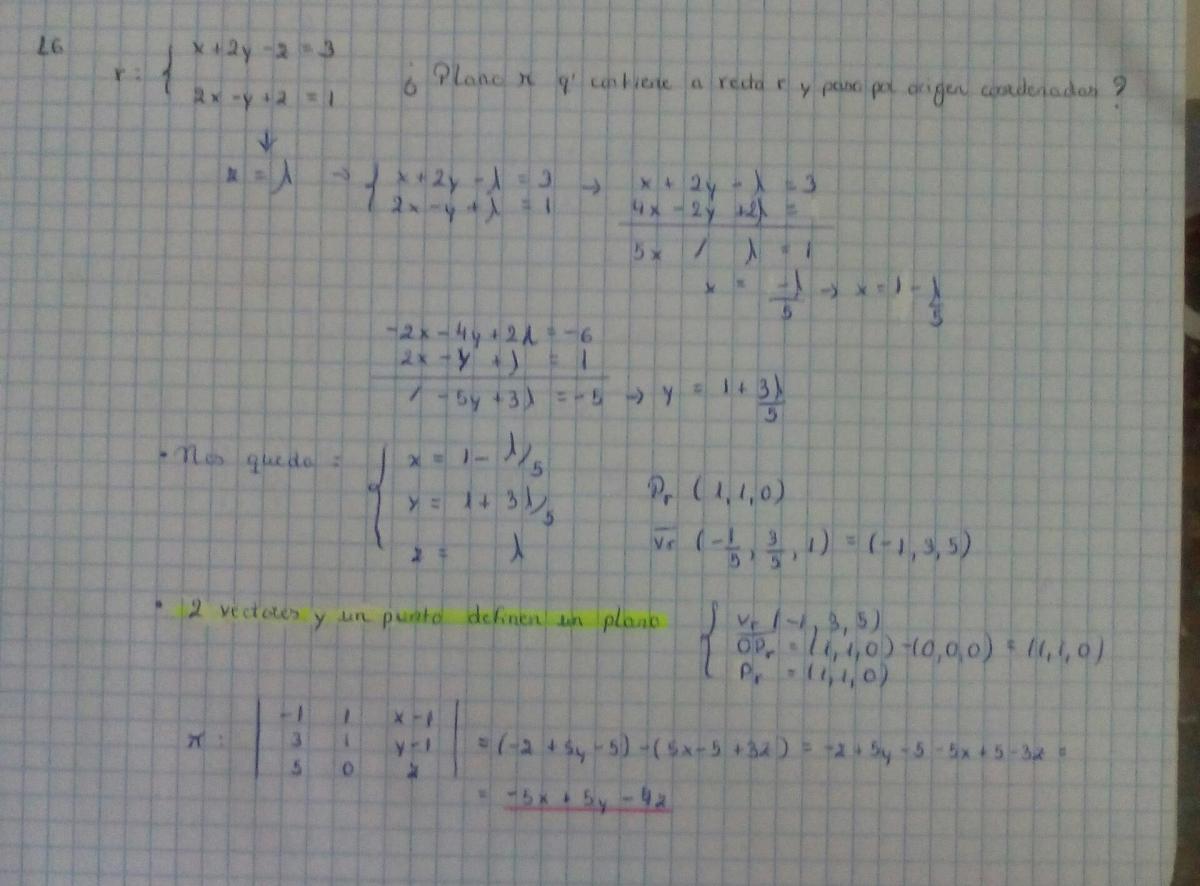 26
r: { x + 2y - z = 3
2x - y + z = 1
¿ Plano π q' contiene a recta r y pasa por origen coordenadas ?
↓
z = λ → { x + 2y - λ = 3 → x + 2y - λ = 3
2x - y + λ = 1 4x - 2y + 2λ =
5x / λ = 1
x = -λ/5 → x = 1 - λ/5
-2x - 4y + 2λ = -6
2x - y + λ = 1
/ - 5y + 3λ = -5 → y = 1 + 3λ/5
• Nos queda = { x = 1 - λ/5
y = 1 + 3λ/5 Pr (1, 1, 0)
z = λ vr (-1/5, 3/5, 1) = (-1, 3, 5)
• 2 vectores y un punto definen un plano { vr (-1, 3, 5)
OPr = (1, 1, 0) - (0, 0, 0) = (1, 1, 0)
Pr = (1, 1, 0)
π : | -1 1 x-1 |
| 3 1 y-1 | = (-z + 5y - 5) - (5x - 5 + 3z) = -z + 5y - 5 - 5x + 5 - 3z =
| 5 0 z |
= -5x + 5y - 4z